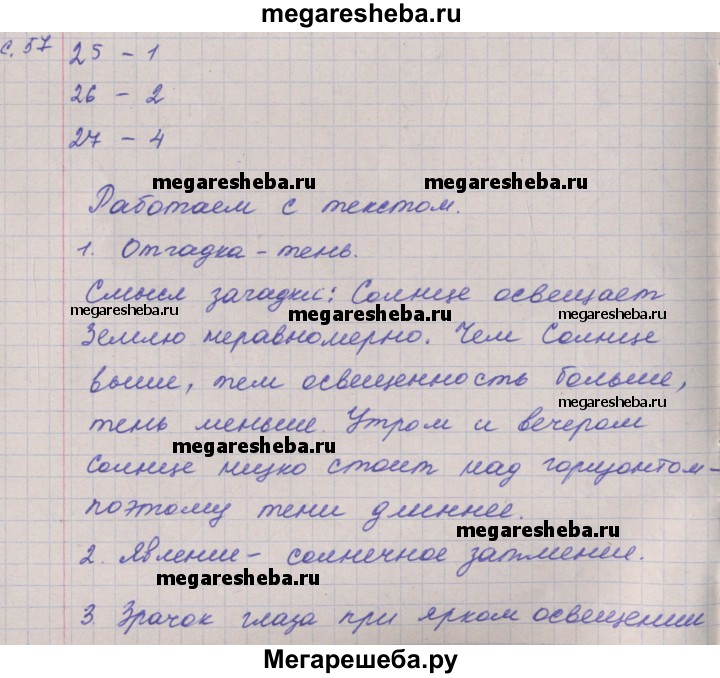 megaresheba.ru
с. 57
25 - 1
26 - 2
27 - 4
megaresheba.ru megaresheba.ru
Работаем с текстом.
1. Отгадка - тень.
Смысл загадки: Солнце освещает
megaresheba.ru megaresheba.ru megaresheba.ru
Землю неравномерно. Чем Солнце
выше, тем освещенность больше,
megaresheba.ru
тень меньше. Утром и вечером
megaresheba.ru
Солнце низко стоит над горизонтом -
поэтому тени длиннее.
megaresheba.ru
2. Явление - солнечное затмение.
megaresheba.ru
3. Зрачок глаза при ярком освещении
Мегарешеба.ру